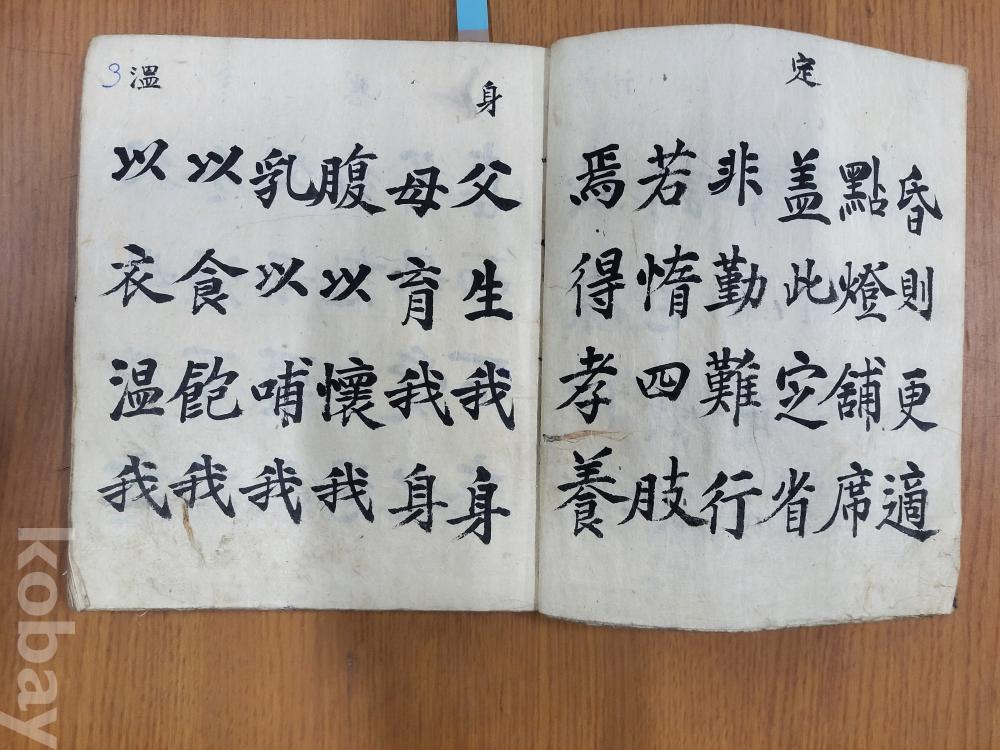 定
昏則更適
點燈舖席
盖此定省
非勤難行
若惰四肢
焉得孝養
身
父生我身
母育我身
腹以懷我
乳以哺我
以食飽我
以衣温我
3 溫
kobay